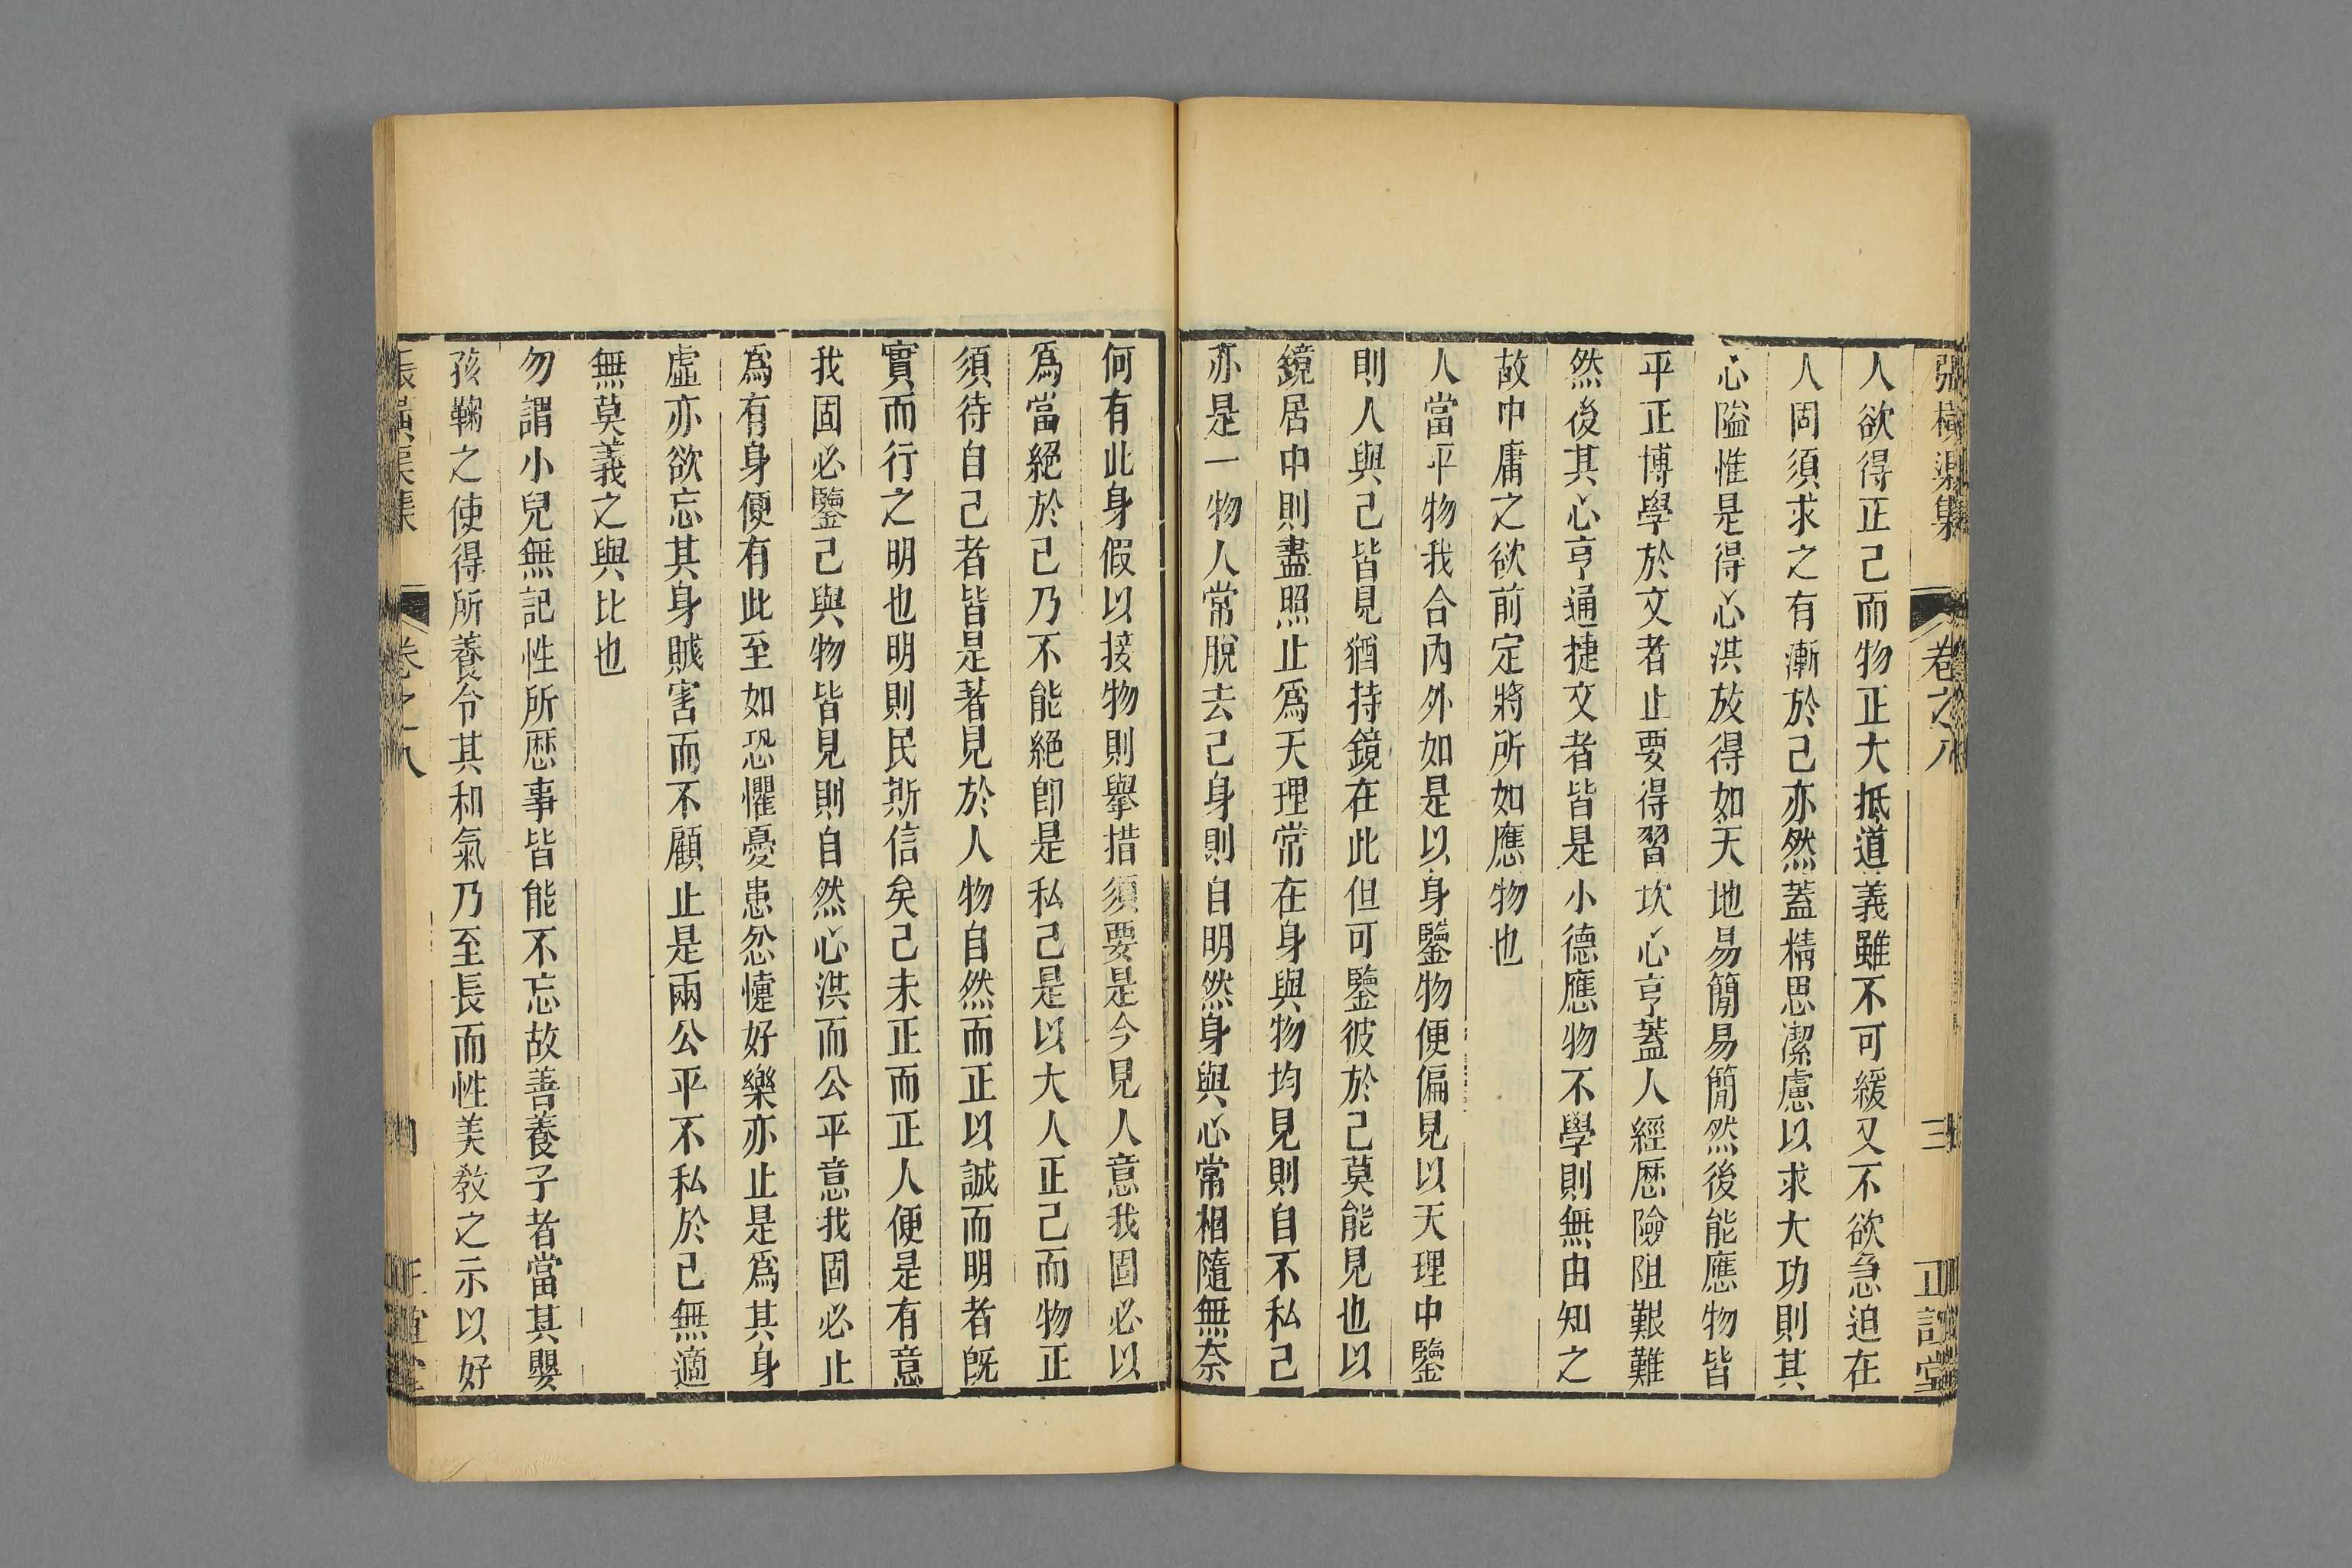 張橫渠集 卷之八 三 正誼堂
人欲得正己而物正大抵道義雖不可緩又不欲急迫在
人固須求之有漸於己亦然蓋精思潔慮以求大功則其
心隘惟是得心洪放得如天地易簡易簡然後能應物皆
平正博學於文者止要得習坎心亨蓋人經歷險阻艱難
然後其心亨通捷文者皆是小德應物不學則無由知之
故中庸之欲前定將所如應物也
人當平物我合內外如是以身鑒物便偏見以天理中鑒
則人與己皆見猶持鏡在此但可鑒彼於己莫能見也以
鏡居中則盡照止為天理常在身與物均見則自不私己
亦是一物人常脫去己身則自明然身與心常相隨無奈
何有此身假以接物則舉措須要是今見人意我固必以
為當絕於己乃不能絕卽是私己是以大人正己而物正
須待自己者皆是著見於人物自然而正以誠而明者旣
實而行之明也明則民斯信矣己未正而正人便是有意
我固必鑒己與物皆見則自然心洪而公平意我固必止
為有身便有此至如恐懼憂患忿懥好樂亦止是為其身
虛亦欲忘其身賊害而不顧止是兩公平不私於己無適
無莫義之與比也
勿謂小兒無記性所歷事皆能不忘故善養子者當其嬰
孩鞠之使得所養令其和氣乃至長而性美教之示以好
張橫渠集 卷之八 四 正誼堂